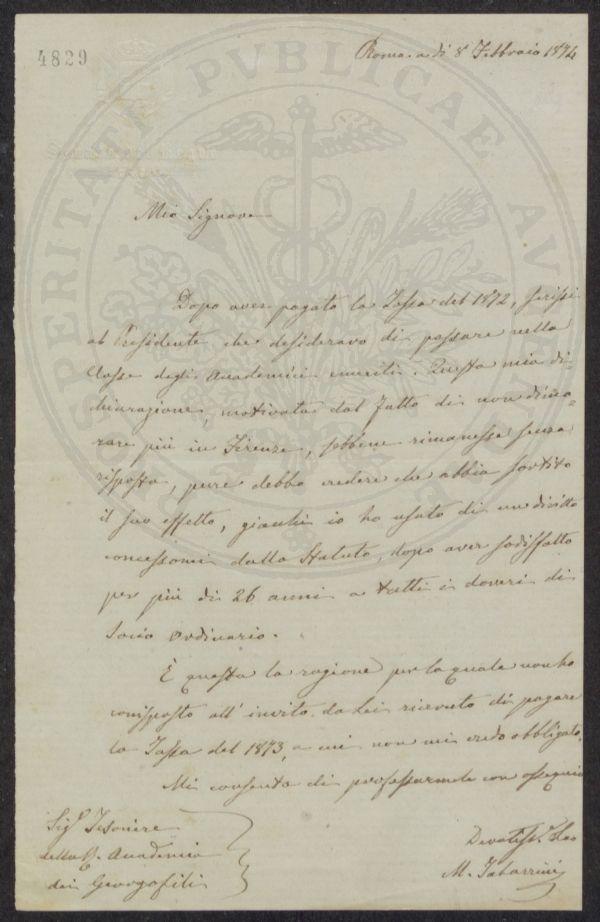 4829
Roma a dì 8 Febbraio 1874
PROSPERITATI PUBLICAE AUGENDAE
Mio Signore
Dopo aver pagato la Tassa del 1872, scrissi
al Presidente che desideravo di passare nella
Classe degli Accademici emeriti. Questa mia di-
chiarazione, motivata dal fatto di non dimo-
rare più in Firenze, sebbene rimanesse senza
risposta, pure debbo credere che abbia sortito
il suo effetto, giacchè io ho usato di un diritto
concessomi dallo Statuto, dopo aver sodisfatto
per più di 26 anni a tutti i doveri di
Socio ordinario.
È questa la ragione per la quale non ho
corrisposto all' invito da Lei ricevuto di pagare
la Tassa del 1873, a cui non mi credo obbligato.
Mi consenta di professarmele con ossequio
Sigr Tesoriere
della R. Accademia
dei Georgofili
Devotiss. Suo
M. Tabarrini